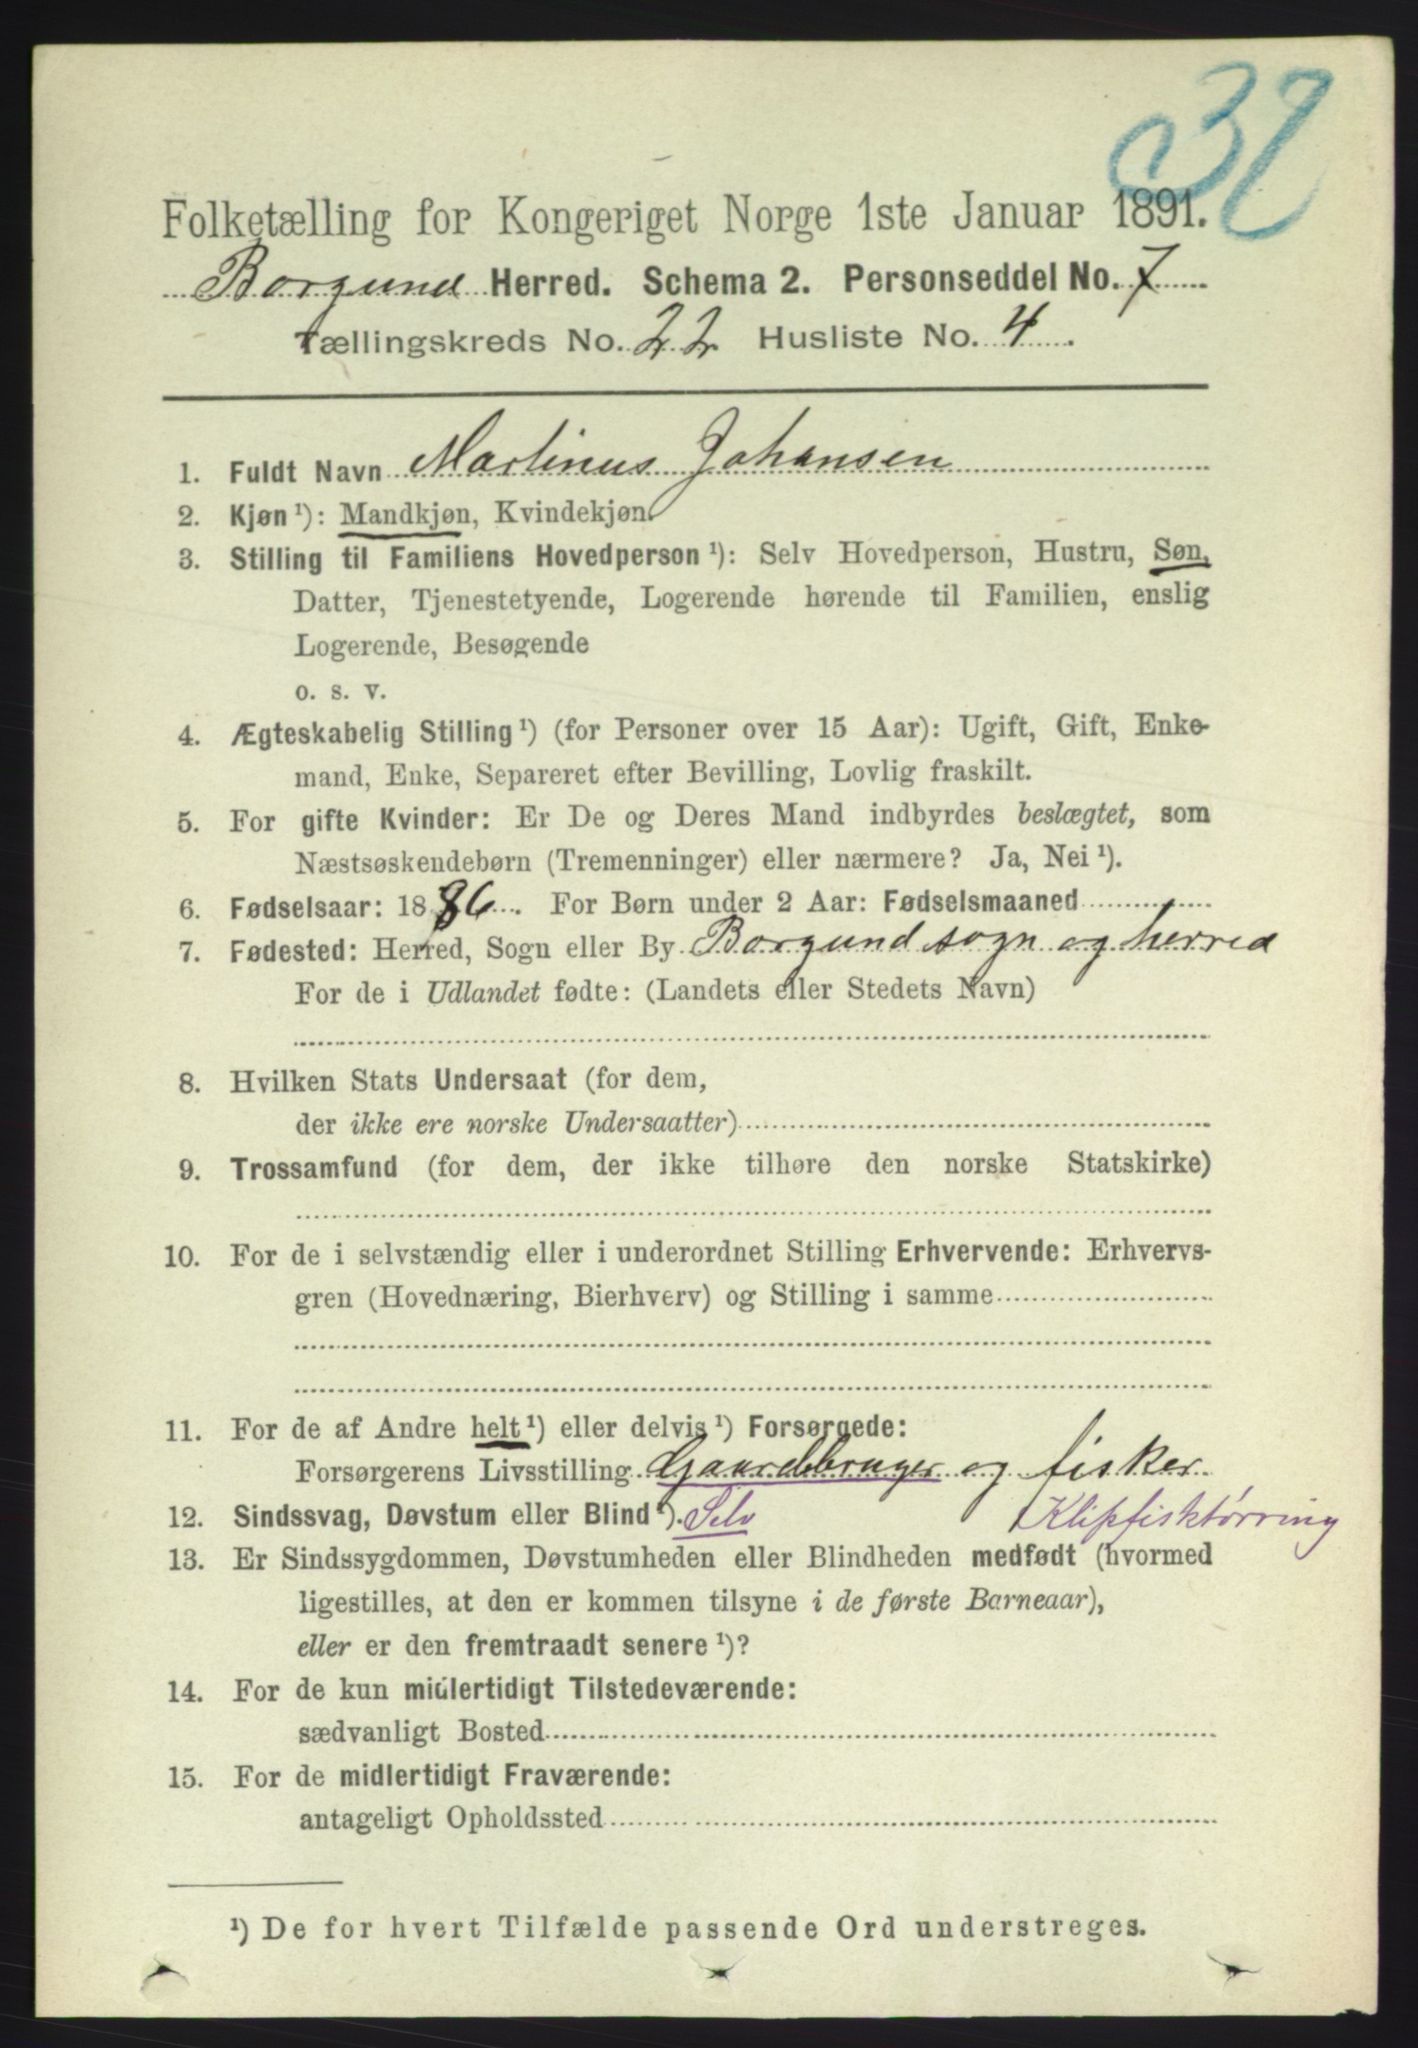 32
Folketælling for Kongeriget Norge 1ste Januar 1891.
Borgund Herred. Schema 2. Personseddel No. 7
Tællingskreds No. 22 Husliste No. 4.
1. Fuldt Navn Martinus Johansen
2. Kjøn ¹): Mandkjøn, Kvindekjøn.
3. Stilling til Familiens Hovedperson ¹): Selv Hovedperson, Hustru, Søn,
Datter, Tjenestetyende, Logerende hørende til Familien, enslig
Logerende, Besøgende
o. s. v.
4. Ægteskabelig Stilling ¹) (for Personer over 15 Aar): Ugift, Gift, Enke-
mand, Enke, Separeret efter Bevilling, Lovlig fraskilt.
5. For gifte Kvinder: Er De og Deres Mand indbyrdes beslægtet, som
Næstsøskendebørn (Tremenninger) eller nærmere? Ja, Nei ¹).
6. Fødselsaar: 1886. For Børn under 2 Aar: Fødselsmaaned
7. Fødested: Herred, Sogn eller By Borgund sogn og herred
For de i Udlandet fødte: (Landets eller Stedets Navn)
8. Hvilken Stats Undersaat (for dem,
der ikke ere norske Undersaatter)
9. Trossamfund (for dem, der ikke tilhøre den norske Statskirke)
10. For de i selvstændig eller i underordnet Stilling Erhvervende: Erhvervs-
gren (Hovednæring, Bierhverv) og Stilling i samme
11. For de af Andre helt ¹) eller delvis ¹) Forsørgede:
Forsørgerens Livsstilling Gaardbruger og fisker
12. Sindssvag, Døvstum eller Blind ¹). Selv Klipfisktørring
13. Er Sindssygdommen, Døvstumheden eller Blindheden medfødt (hvormed
ligestilles, at den er kommen tilsyne i de første Barneaar),
eller er den fremtraadt senere ¹)?
14. For de kun midlertidigt Tilstedeværende:
sædvanligt Bosted
15. For de midlertidigt Fraværende:
antageligt Opholdssted
¹) De for hvert Tilfælde passende Ord understreges.